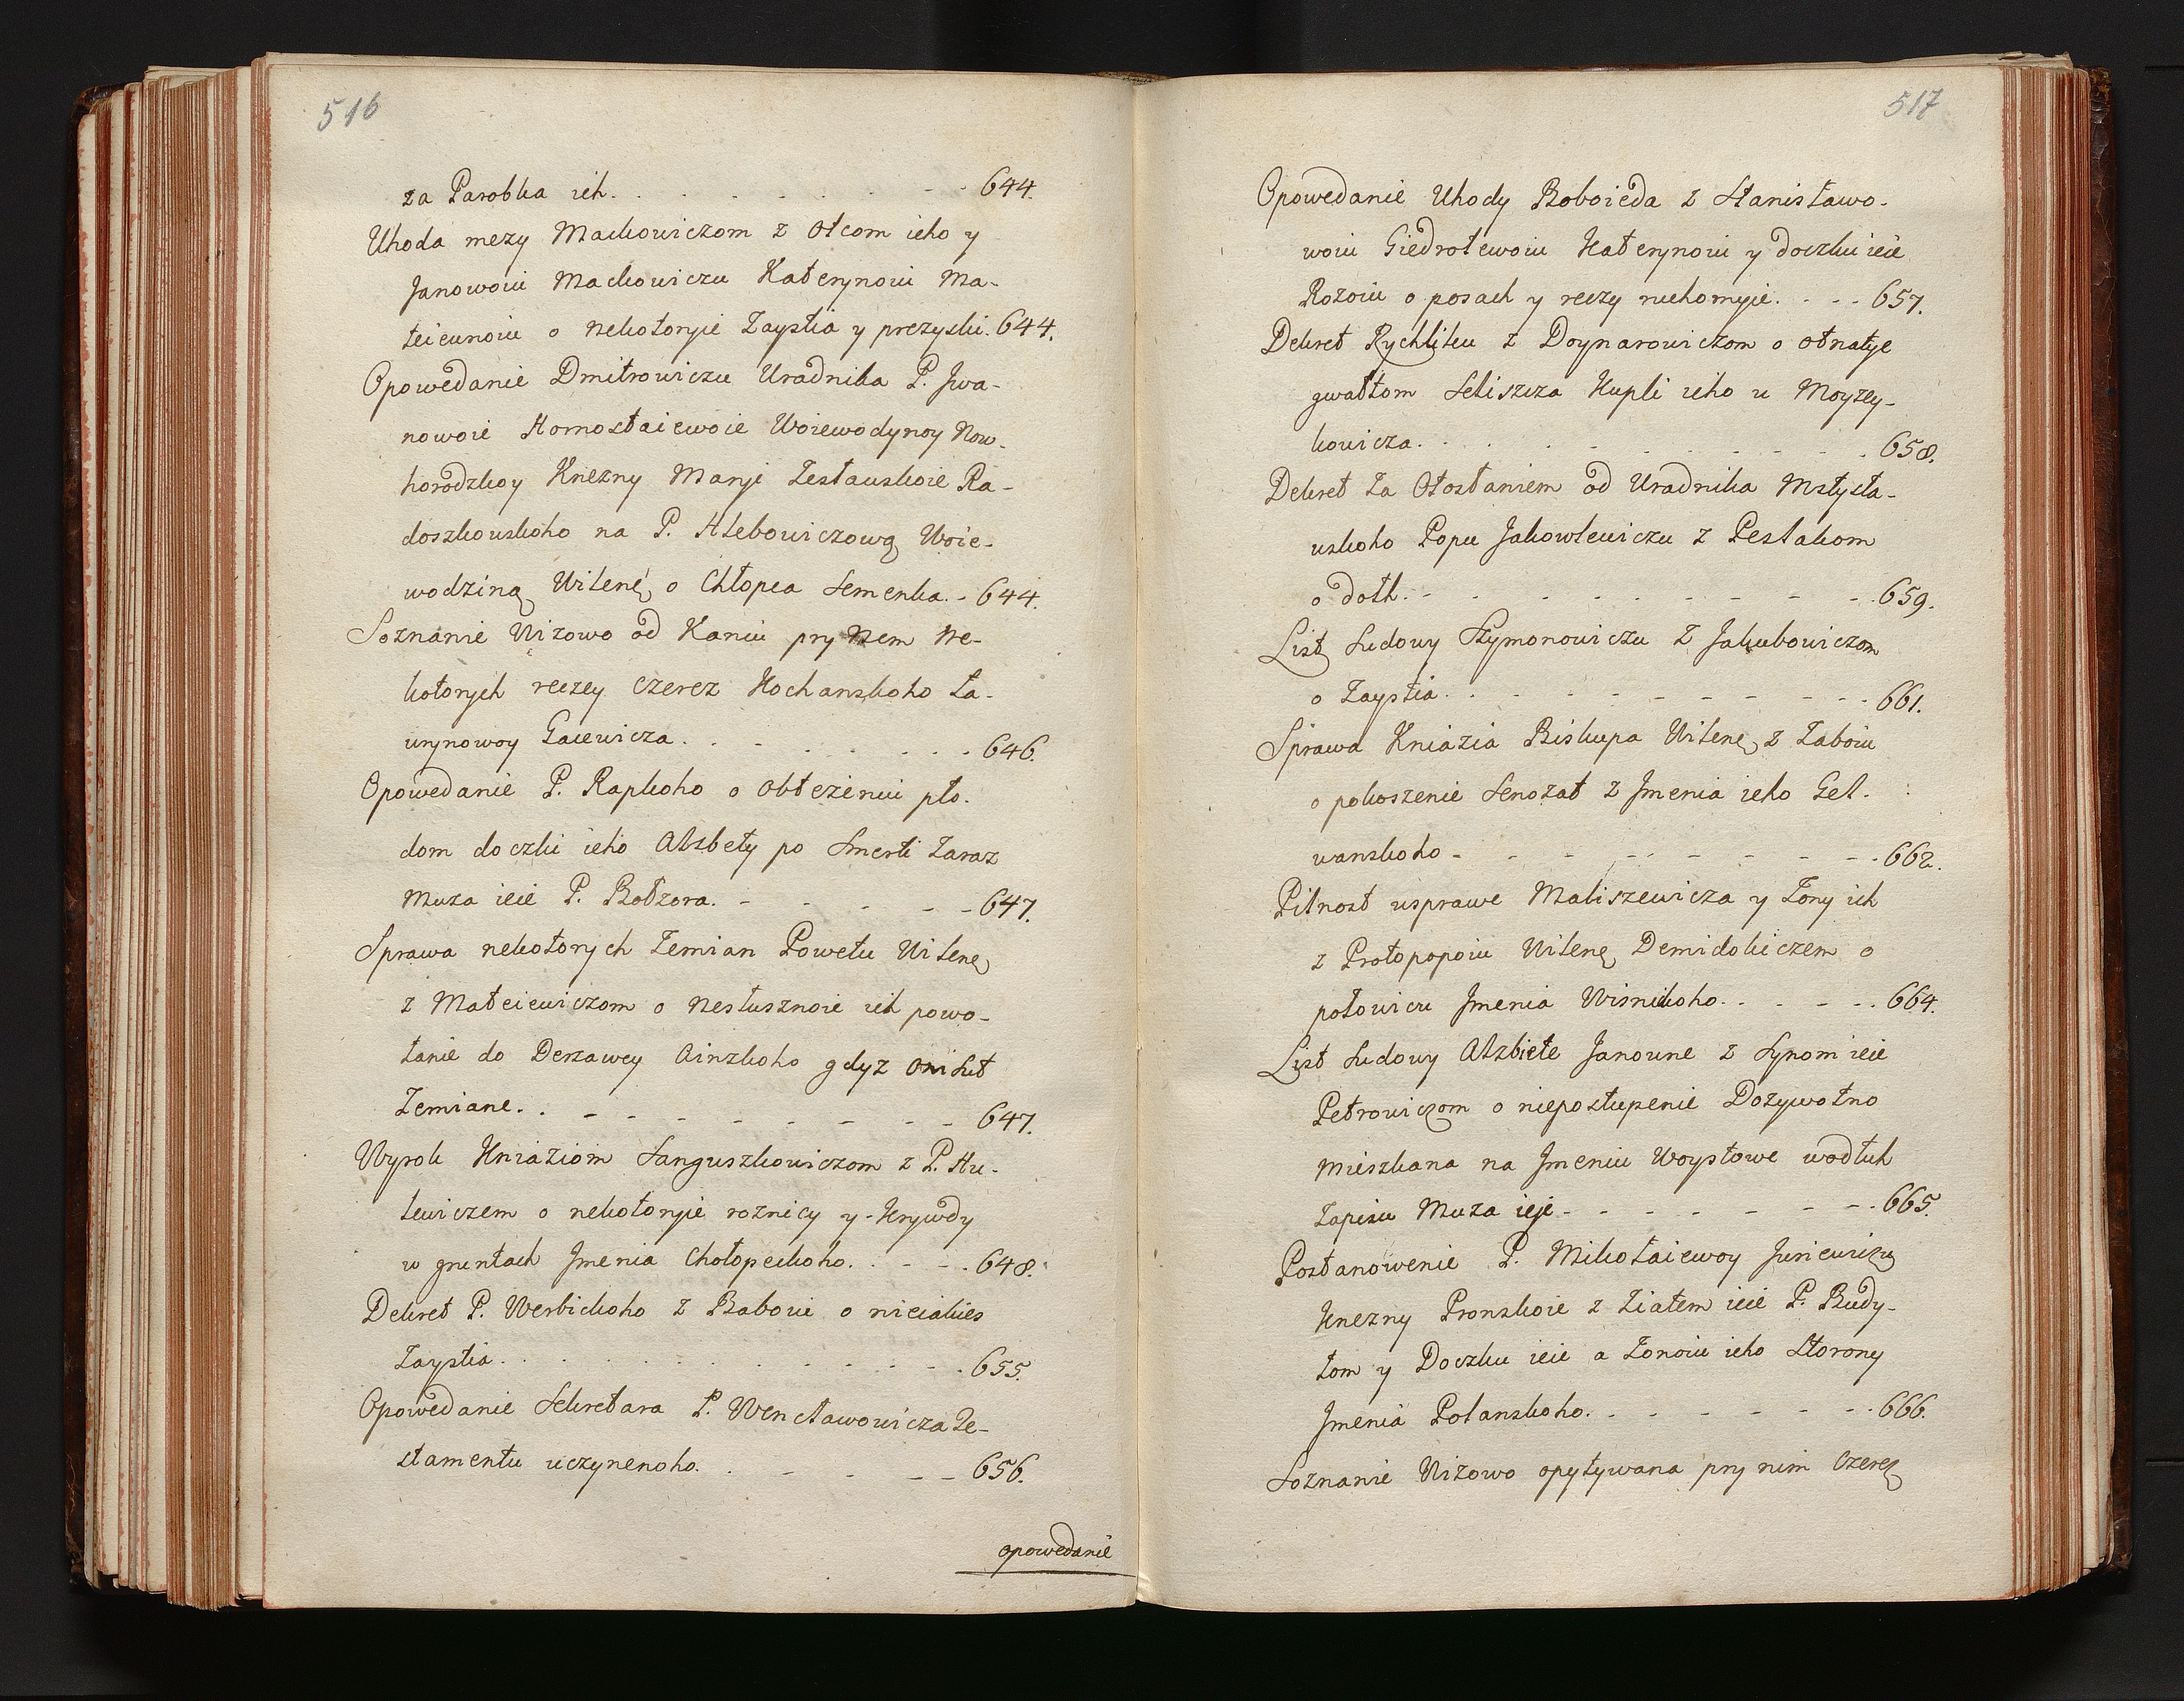 516
za Parobka ich. . . . . . . - - 644.
Uhoda mezy Mackowiczom z Otcom ieho y
Janowoiu Mackowiczu Katerynoiu Ma-
teieunoiu o nekotoryie Zaystia y prezyski. 644.
Opowedanie Dmitrowiczu Uradnika P. Jwa-
nowoie Hornostaiewoie Woiewodynoy Now-
horodzkoy Knezny Maryi Zestauskoie Ra-
doszkouskoho na P. Hlebowiczową Woie-
wodziną Wilenę, o Chłopca Semenka. - 644.
Soznanie Wizowo od Kaniu pry Nem Ne-
kotorych reczey Czerez Kochanskoho Ła-
urynowoy Gaiewicza. . . - . . . . . 646.
Opowedanie P. Rapkoho o Obtezeniu pło-
dom doczki ieho Alzbety po Smerti Zaraz
Muza ieie P. Botzora. - - - - - - 647.
Sprawa nekotorych Zemian Powetu Wilenę
z Mateiewiczom o Nesłusznoie ich powo-
łanie do Derzawcy Ainzkoho gdyz oni sut
Zemiane. . - - - - - - - - 647.
Wyrok Kniaziom Sanguszkowiczom z P. Hu-
lewiczem o nekotoryie roznicy y Krywdy
w gruntach Jmenia Chołopeckoho. . - - . 648.
Dekret P. Werbickoho z Baboiu o nieiakies
Zaystia. . . . . . . . . . . - . 655.
Opowedanie Sekretara P. Wencławowicza Te-
stamentu uczynenoho. . - - - - 656.
opowedanie
517
Opowedanie Uhody Boboieda z Stanisławo-
woiu Giedrotewoiu Katerynoiu y doczku ieie
Rozoiu o posach y reczy ruchomyie. . - - 657.
Dekret Rychliku z Doynarowiczom o otnatye
gwałtom Seliszcza Kupli ieho u Moyzey-
kowicza. . . . . - - - - - . 658.
Dekret Za Otosłaniem od Uradnika Mstysła-
uskoho Popu Jakowlewiczu z Pestakom
o dołh. - - - - - - - - - . 659.
List Sudowy Szymonowiczu Z Jakubowiczom
o Zaystia. . - - - - - - - - . 661.
Sprawa Kniazia Biskupa Wilenę z Zaboiu
o pokoszenie Senozat z Jmenia ieho Gel-
wanskoho - - - - - - - - - . 662.
Pilnost usprawe Maliszewicza y Zony ich
z Protopopoiu Wilenę Demidokiczem o
połowicu Jmenia Wisnickoho. . - - - . 664.
List Sudowy Alzbiete Janowne z Synom ieie
Petrowiczom o niepostupenie Dozywotno
Mieszkana na Jmeniu Woystowe wodłuh
Zapisu Muza ieie - - - - - - - - . 665.
Postanowenie P. Mikołaiewoy Juriewiczę
Knezny Pronskoie z Ziatem ieie P. Rudy-
tom y Doczku ieie a Zonoiu ieho Storony
Jmenia Polanskoho. . - - - - - - . 666.
Soznanie Wizowo opytywana pry nim Czerez